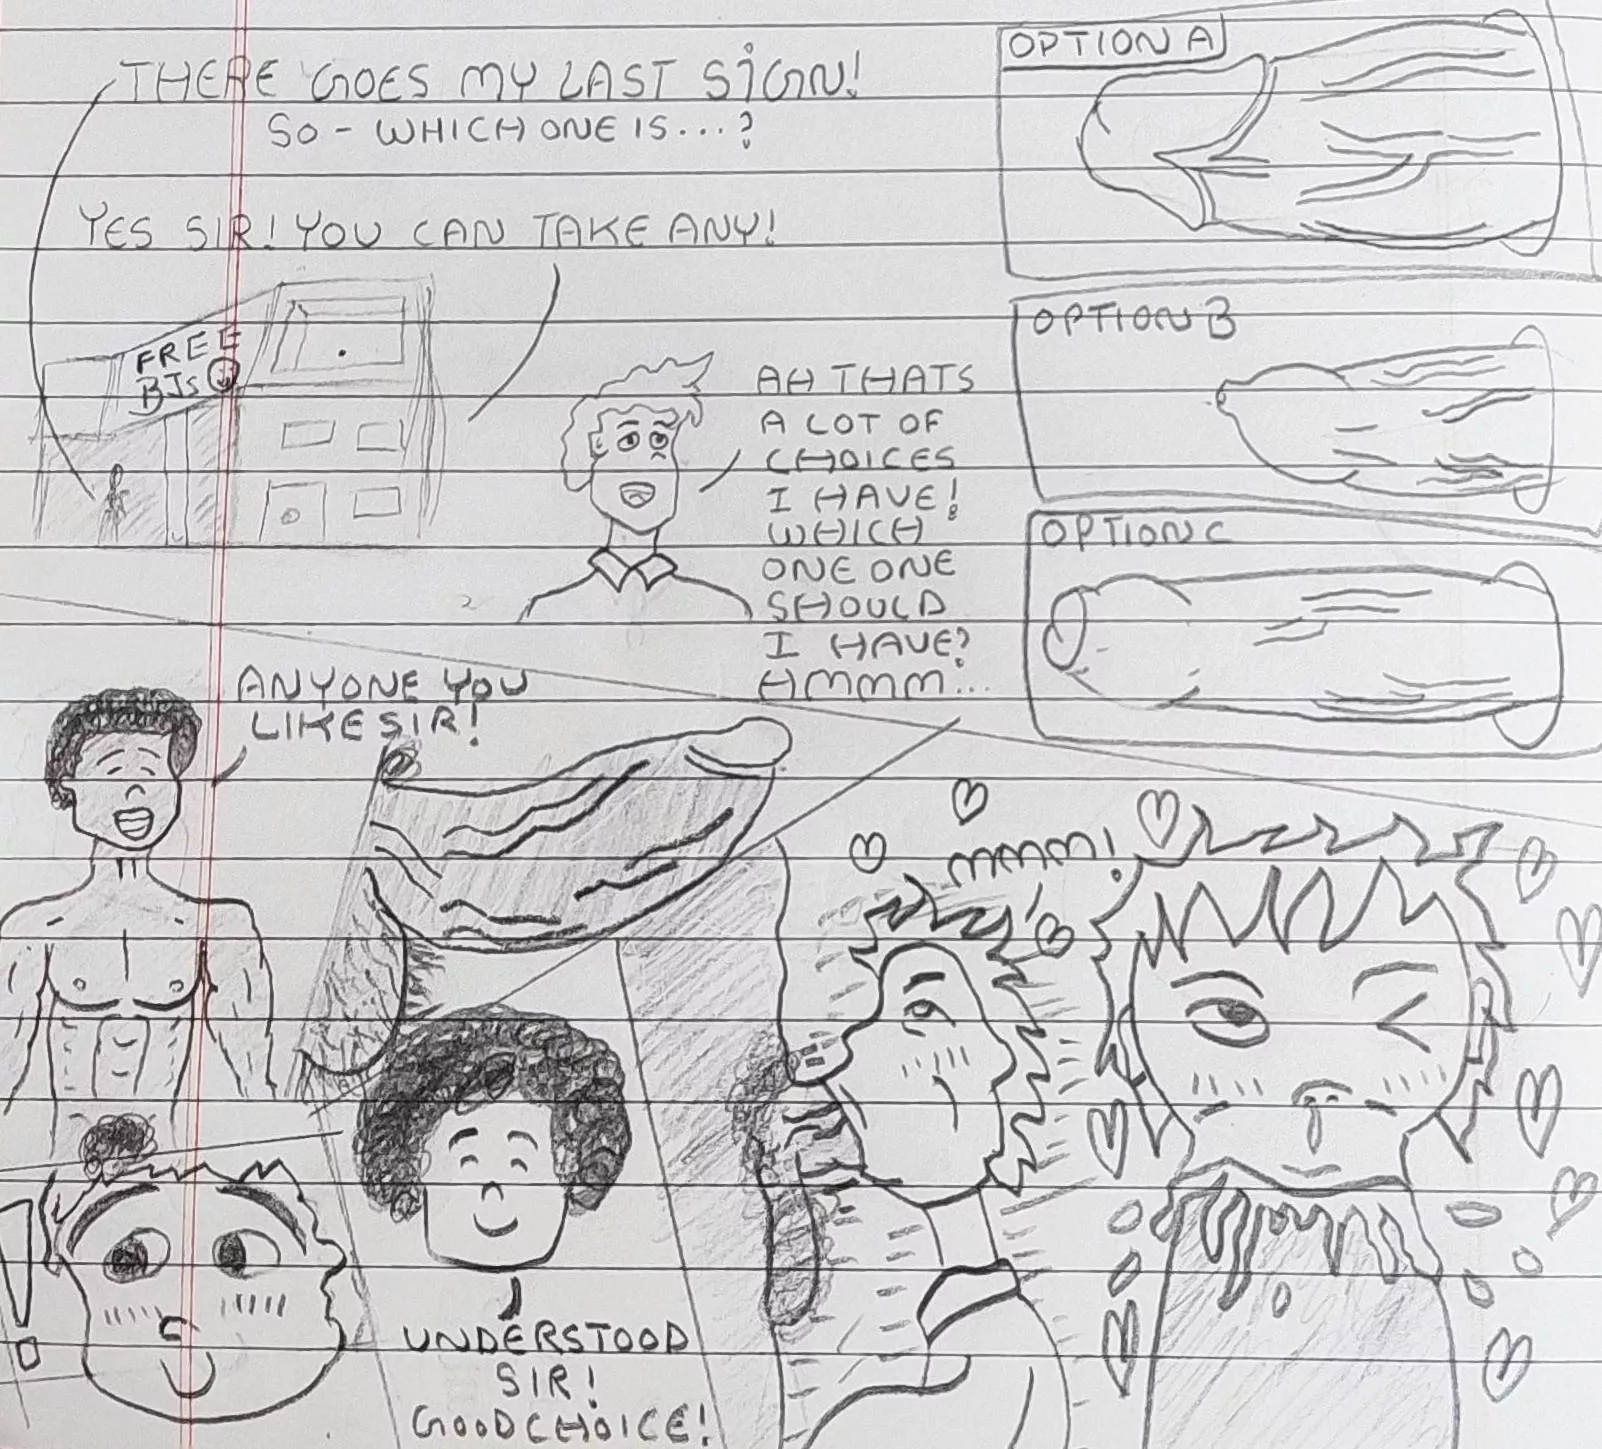 THERE GOES MY LAST SIGN!
SO - WHICH ONE IS...?
YES SIR! YOU CAN TAKE ANY!
FREE
BJs
AH THATS
A LOT OF
CHOICES
I HAVE!
WHICH
ONE ONE
SHOULD
I HAVE?
HMMM...
OPTION A
OPTION B
OPTION C
ANYONE YOU
LIKE SIR!
!
UNDERSTOOD
SIR!
GOOD CHOICE!
MMM!